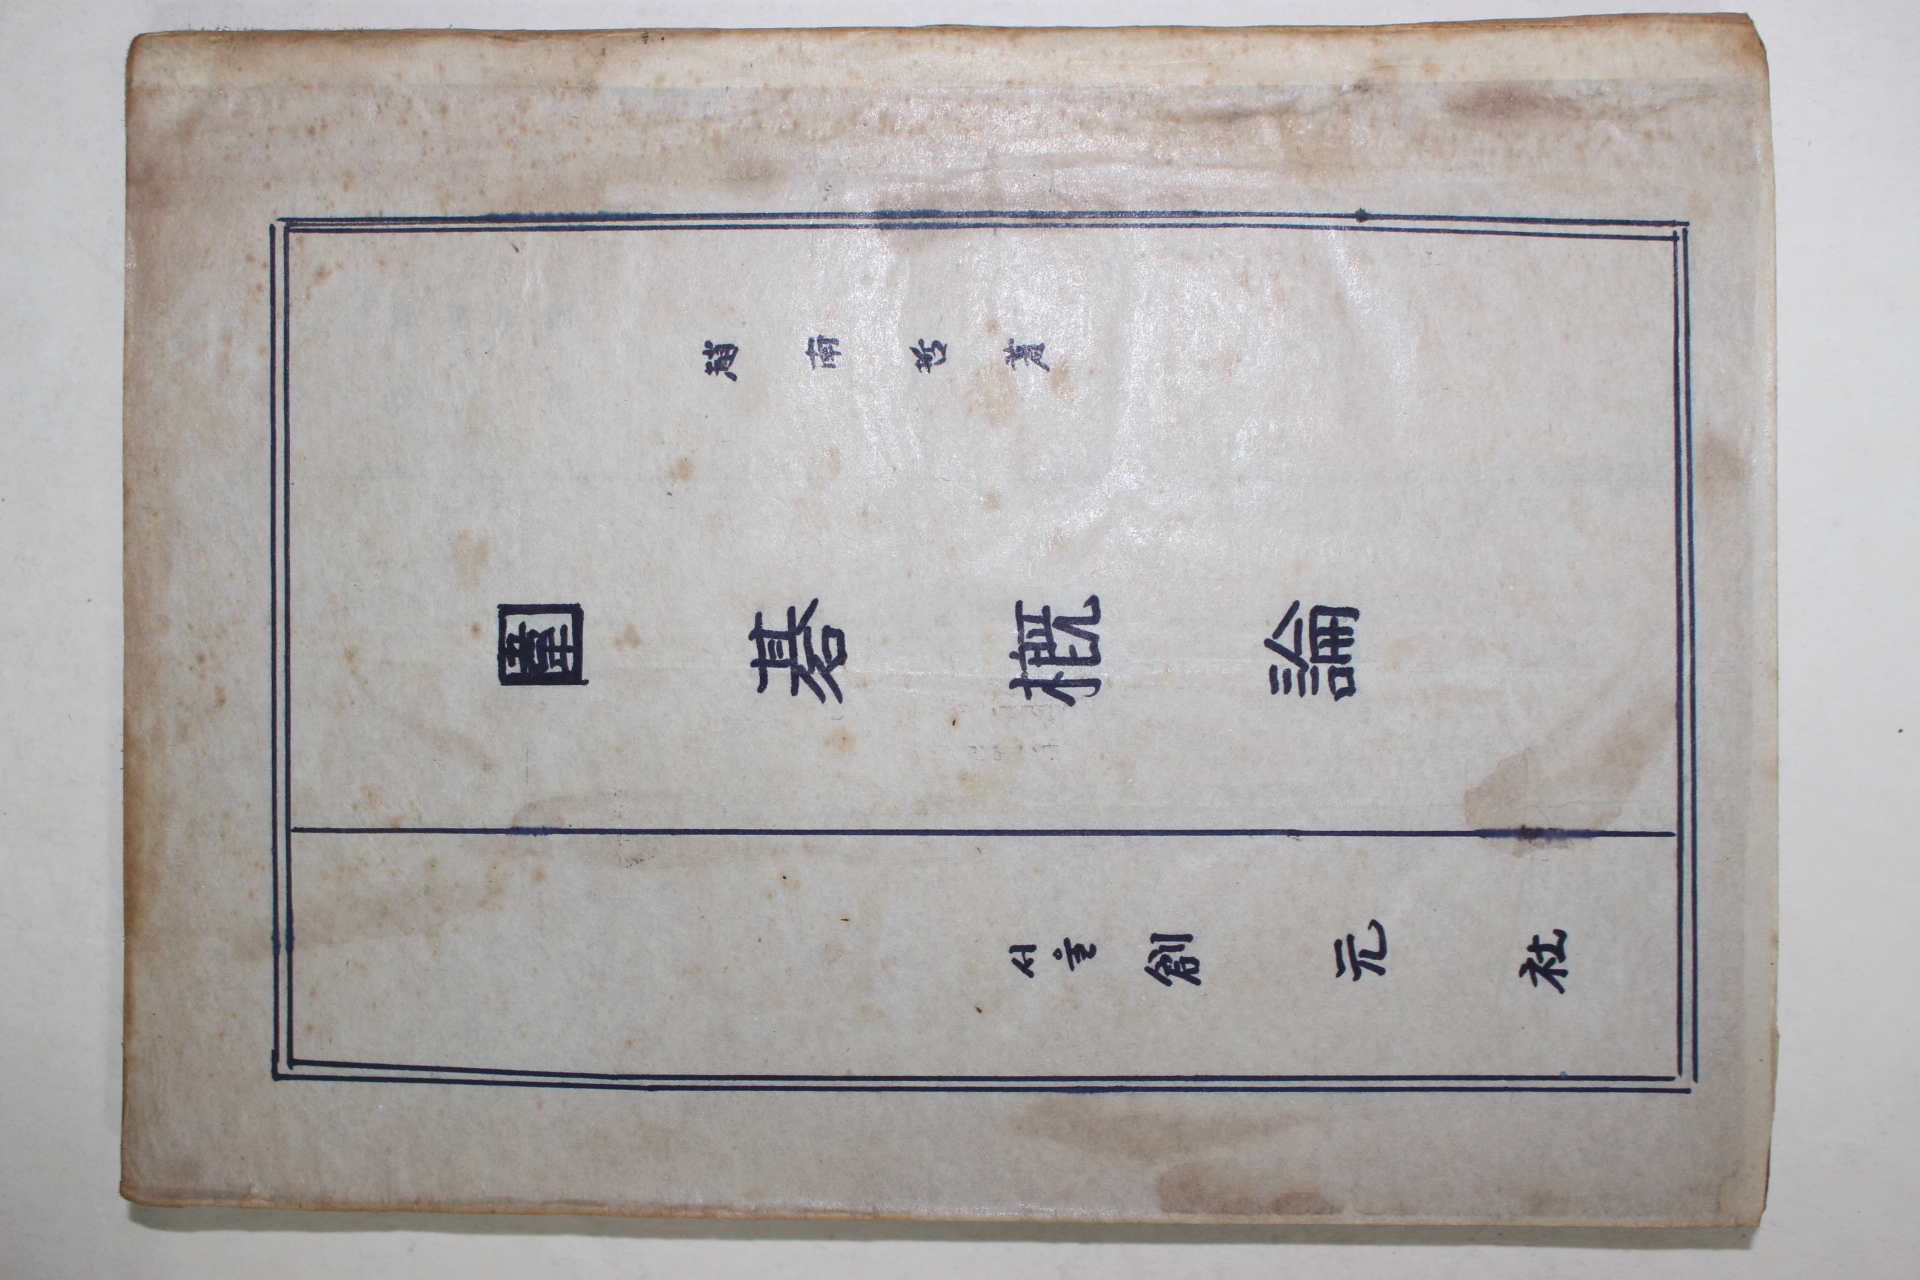 趙南哲著
圍碁概論
서울 創元社